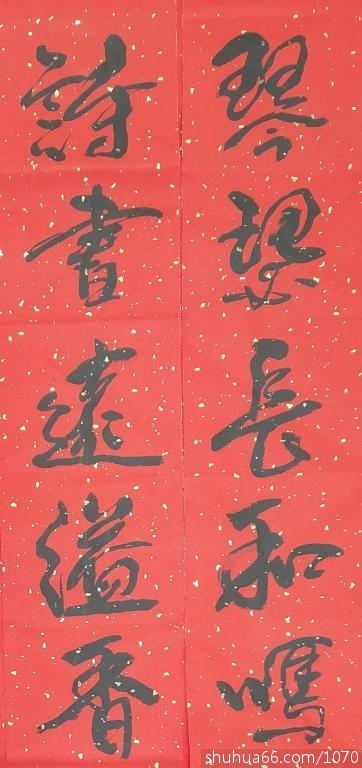 琴瑟長和鳴
詩書遠溢香
shuhua66.com/1070